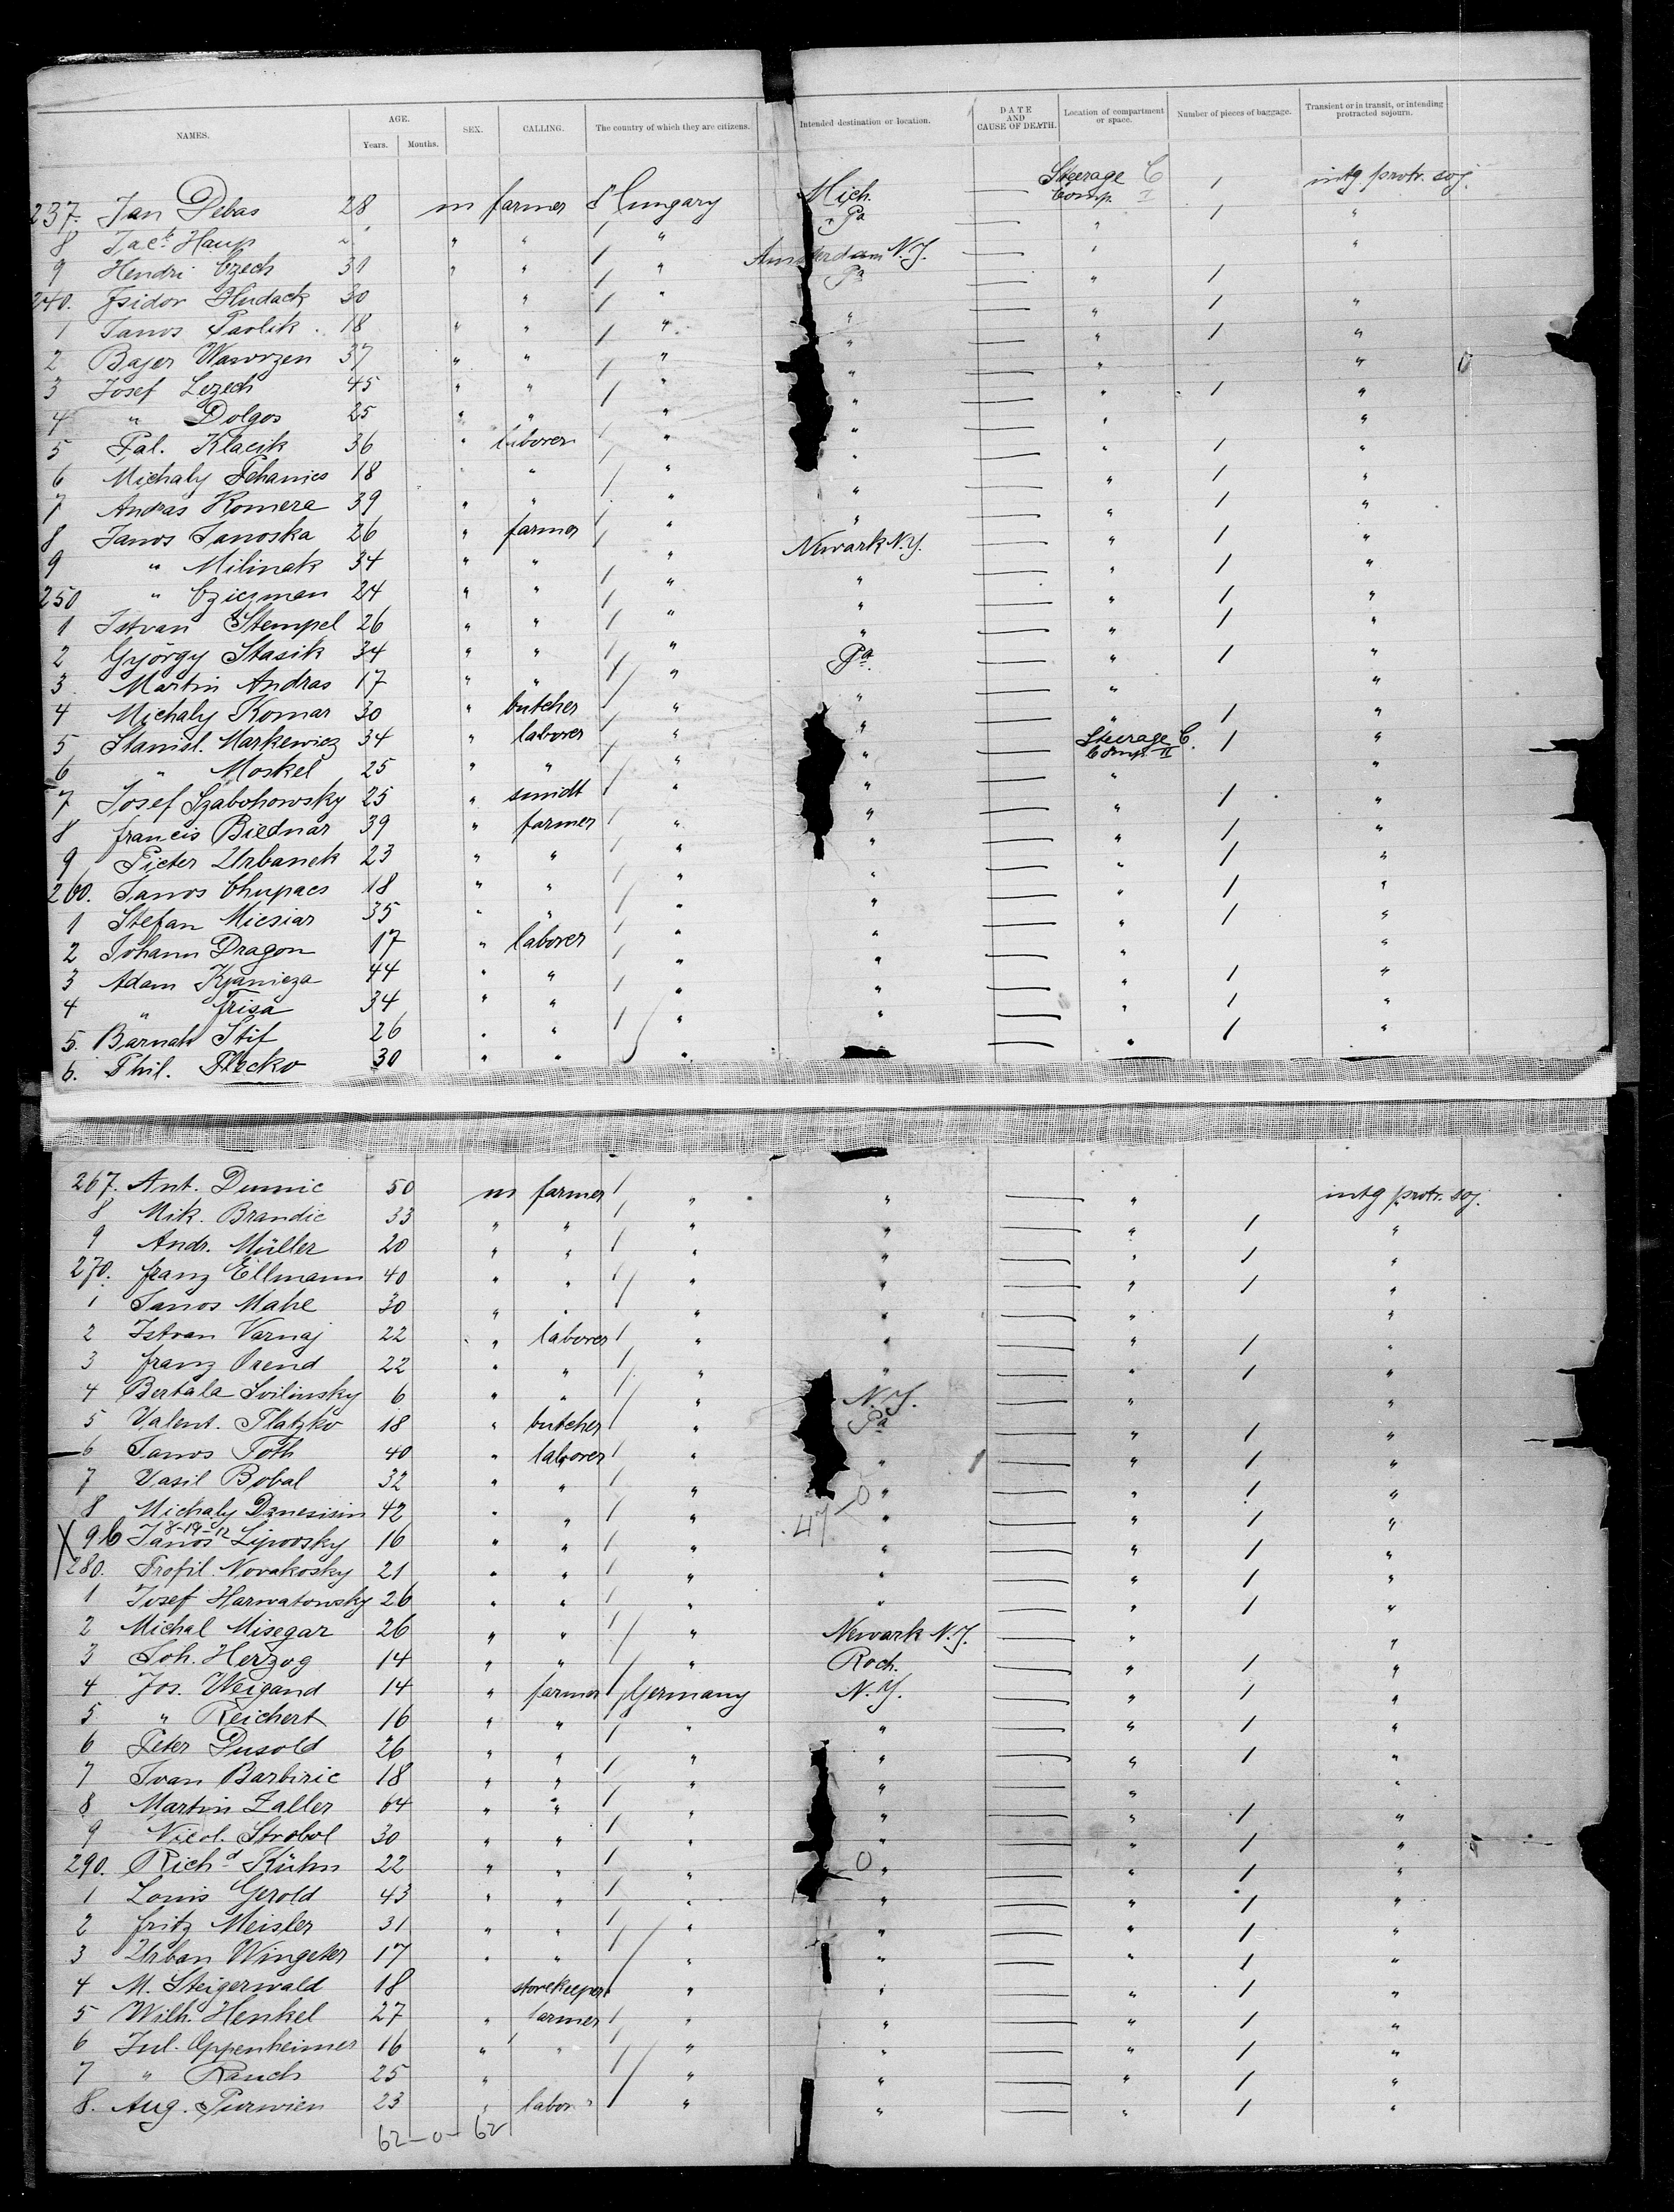 NAMES. AGE. Years. Months. SEX. CALLING. The country of which they are citizens. Intended destination or location. DATE AND CAUSE OF DEATH. Location of compartment or space. Number of pieces of baggage. Transient or in transit, or intending protracted sojourn.
237. Jan Debas 28 m farmer Hungary Mich. — Steerage C Comp. I 1 intg protr. soj.
8 Jac. Haup " " " " Pa — " 1 "
9 Hendri Czech 31 " " " Amsterdam N.Y. — " "
240. Isidor Hudack 30 " " Pa — " 1
1 Janos Pavlik 18 " " " " — " 1 "
2 Bajer Wawrzen 37 " " " " — " 1 "
3 Josef Lezech 45 " " " " — " "
4 " Dolgos 25 " " " " — " 1 "
5 Pal. Klacik 36 " laborer " " — " "
6 Michaly Pchanics 18 " " " " — " 1 "
7 Andras Komera 39 " " " " — " 1 "
8 Janos Janoska 26 " farmer " " — " 1 "
9 " Milinak 34 " " " Newark N.Y. — " 1 "
250 " Cziczman 24 " " " " — " 1 "
1 Istvan Stempel 26 " " " " — " 1 "
2 György Stasik 34 " " " " — " 1 "
3 Martin Andras 17 " " " Pa. — " 1 "
4 Michaly Komar 30 " butcher " " — " "
5 Stanisl. Markewicz 34 " laborer " " — " 1 "
6 " Moskel 25 " " " " Steerage C. Comp. II 1 "
7 Josef Szabohowsky 25 " smidt " " — " "
8 Francis Biednar 39 " farmer " " — " 1 "
9 Pieter Urbanek 23 " " " " — " 1 "
260. Janos Chupacs 18 " " " " — " 1 "
1 Stefan Micsiar 35 " " " " — " 1 "
2 Johann Dragon 17 " laborer " " — " 1 "
3 Adam Kjanieza 44 " " " " — " "
4 " Frisa 34 " " " " — " 1 "
5. Barnah Stif 26 " " " " — " 1 "
6. Phil. Flecko 30 " " " — " 1 "
267. Ant. Dumic 50 m farmer " " — " intg protr. soj.
8 Mik. Brandic 33 " " " " — " 1 "
9 Andr. Müller 20 " " " " — " 1 "
270. Franz Ellmann 40 " " " " — " 1 "
1 Janos Mahe 30 " " " " — " "
2 Istvan Varnaj 22 " laborer " " — " 1 "
3 Franz Orend 22 " " " " — " 1 "
4 Bertala Svilinsky 6 " " " N.Y. — " "
5 Valent. Platzko 18 " butcher " Pa — " 1 "
6 Janos Toth 40 " laborer " " 1 — " 1 "
7 Vasil Bobal 32 " " " " — " 1 "
8 Michaly Dznesisin 42 " " " " — " 1 "
8-19-12
X 9 b Janos Lipovsky 16 " " " " — " 1 "
280. Trofil. Novakosky 21 " " " " — " 1 "
1 Josef Harwatowsky 26 " " " " — " 1 "
2 Michal Misegar 26 " " " Newark N.J. — " "
3 Joh. Herzog 14 " " " Roch. — " 1 "
4 Jos. Weigand 14 " farmer Germany N.Y. — " 1 "
5 " Reichert 16 " " " " — " 1 "
6 Peter Dusold 26 " " " " — " 1 "
7 Ivan Barbiric 18 " " " " — " "
8 Martin Zaller 64 " " " " — " 1 "
9 Nicol. Strobol 30 " " " " — " 1 "
290. Richd Kühn 22 " " " " — " 1 "
1 Louis Gerold 43 " " " " — " 1 "
2 Fritz Meisler 31 " " " " — " 1 "
3 Urban Wingeter 17 " " " " — " 1 "
4 M. Steigerwald 18 storekeeper " " — " 1 "
5 Wilh. Henkel 27 " farmer " " — " 1 "
6 Jul. Oppenheimer 16 " " " " — " 1 "
7 " Rauch 25 " " " — " 1 "
8. Aug. Purwien 23 " labor " " — " 1 "
62-0-62